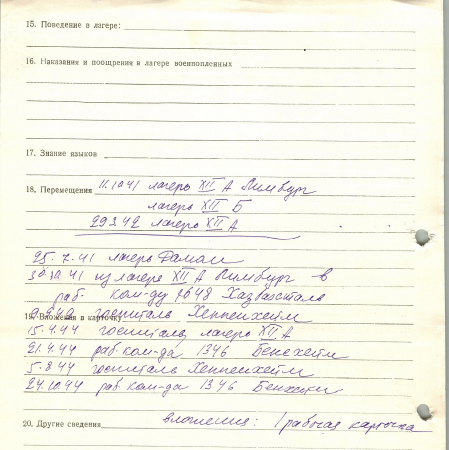 15. Поведение в лагере:
16. Наказания и поощрения в лагере военнопленных
17. Знание языков
18. Перемещения 11.10 41 лагерь XII А Лимбург
лагерь XII Б
29 3 42 лагерь XII А
25. 7. 41 лагерь
30.10 41 из лагеря XII А Лимбург в
раб. ком-ду 2648
госпиталь Хеппенхейм
19. Вложения в карточку
15.4.44 госпиталь лагерь XII А
21.4.44 раб. ком-да 1346 Бенсхейм
5.8 44 госпиталь Хеппенхейм
24.10 44 раб ком-да 1346
20. Другие сведения вложения: 1 рабочая карточка